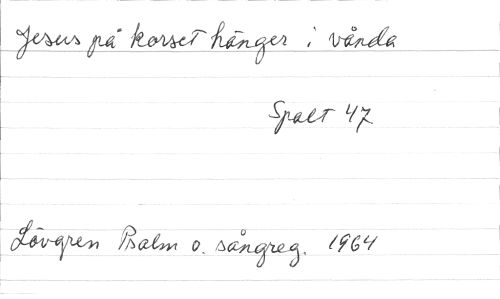 Jesus på korset hänger i vånda
Spalt 47
Lövgren Psalm o. sångreg. 1964